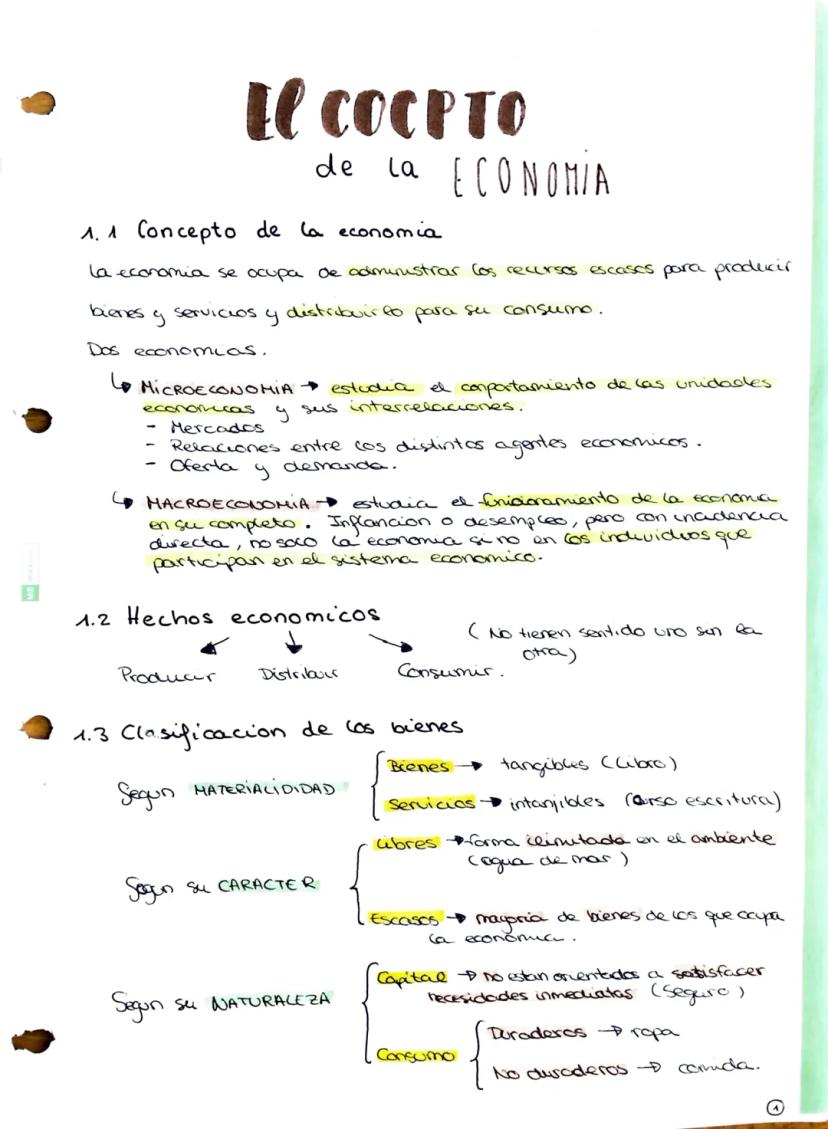 El COCPTO
de la ECONOMíA
1.1 Concepto de la economia
La economia se ocupa de administrar los recursos escasos para producir
bienes y servicios y distribuirlo para su consumo.
Dos economias.
↳ MICROECONOMIA → estudia el comportamiento de las unidades
economicas y sus interrelaciones.
- Mercados
- Relaciones entre los distintos agentes economicos.
- Oferta y demanda.
↳ MACROECONOMIA → estudia el funcionamiento de la economia
en su completo. Inflancion o desempleo, pero con incidencia
directa, no solo la economia si no en los individuos que
participan en el sistema economico.
1.2 Hechos economicos
(No tienen sentido uno sin la
otra)
Producir Distribuir Consumir.
1.3 Clasificacion de los bienes
Bienes → tangibles (Libro)
Segun MATERIALIDIDAD
Servicios → intanjibles (Curso escritura)
Libres → forma ilimitada en el ambiente
(agua de mar)
Segun su CARACTER
Escasos → mayoria de bienes de los que ocupa
la economia.
Capital → no estan orientados a satisfacer
necesidades inmediatas (Seguro)
Segun su NATURALEZA
Duraderos → ropa
Consumo
No duraderos → comida.
1